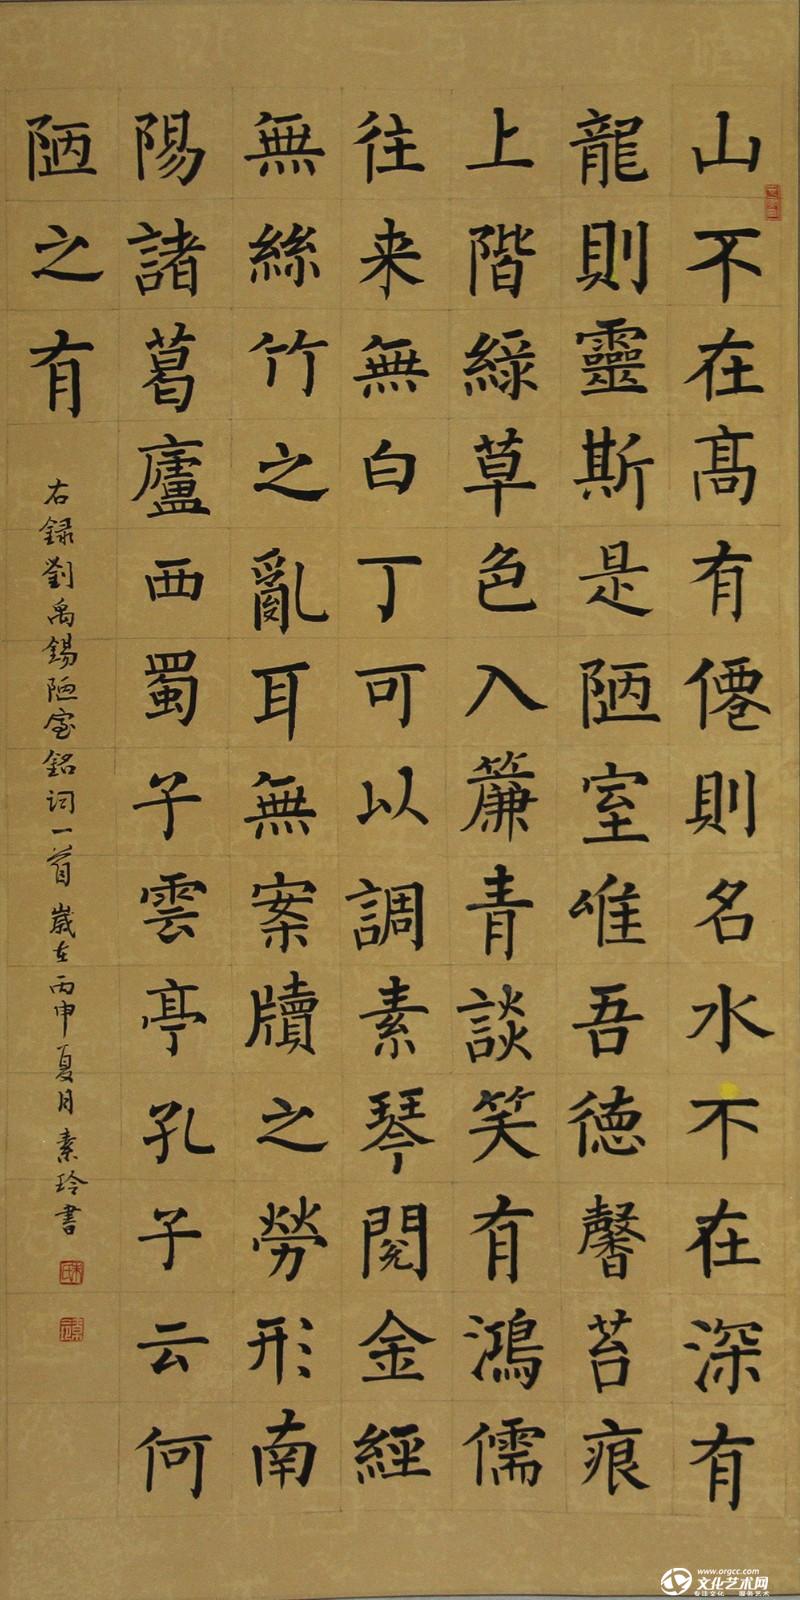 山不在髙有僊則名水不在深有
龍則靈斯是陋室唯吾德馨苔痕
上階綠草色入簾青談笑有鴻儒
往来無白丁可以調素琴閱金經
無絲竹之亂耳無案牘之勞形南
陽諸葛廬西蜀子雲亭孔子云何
陋之有
右録劉禹錫陋室銘詞一首 歲在丙申夏月素玲書
www.orgcc.com
文化艺术网
专注文化 服务艺术